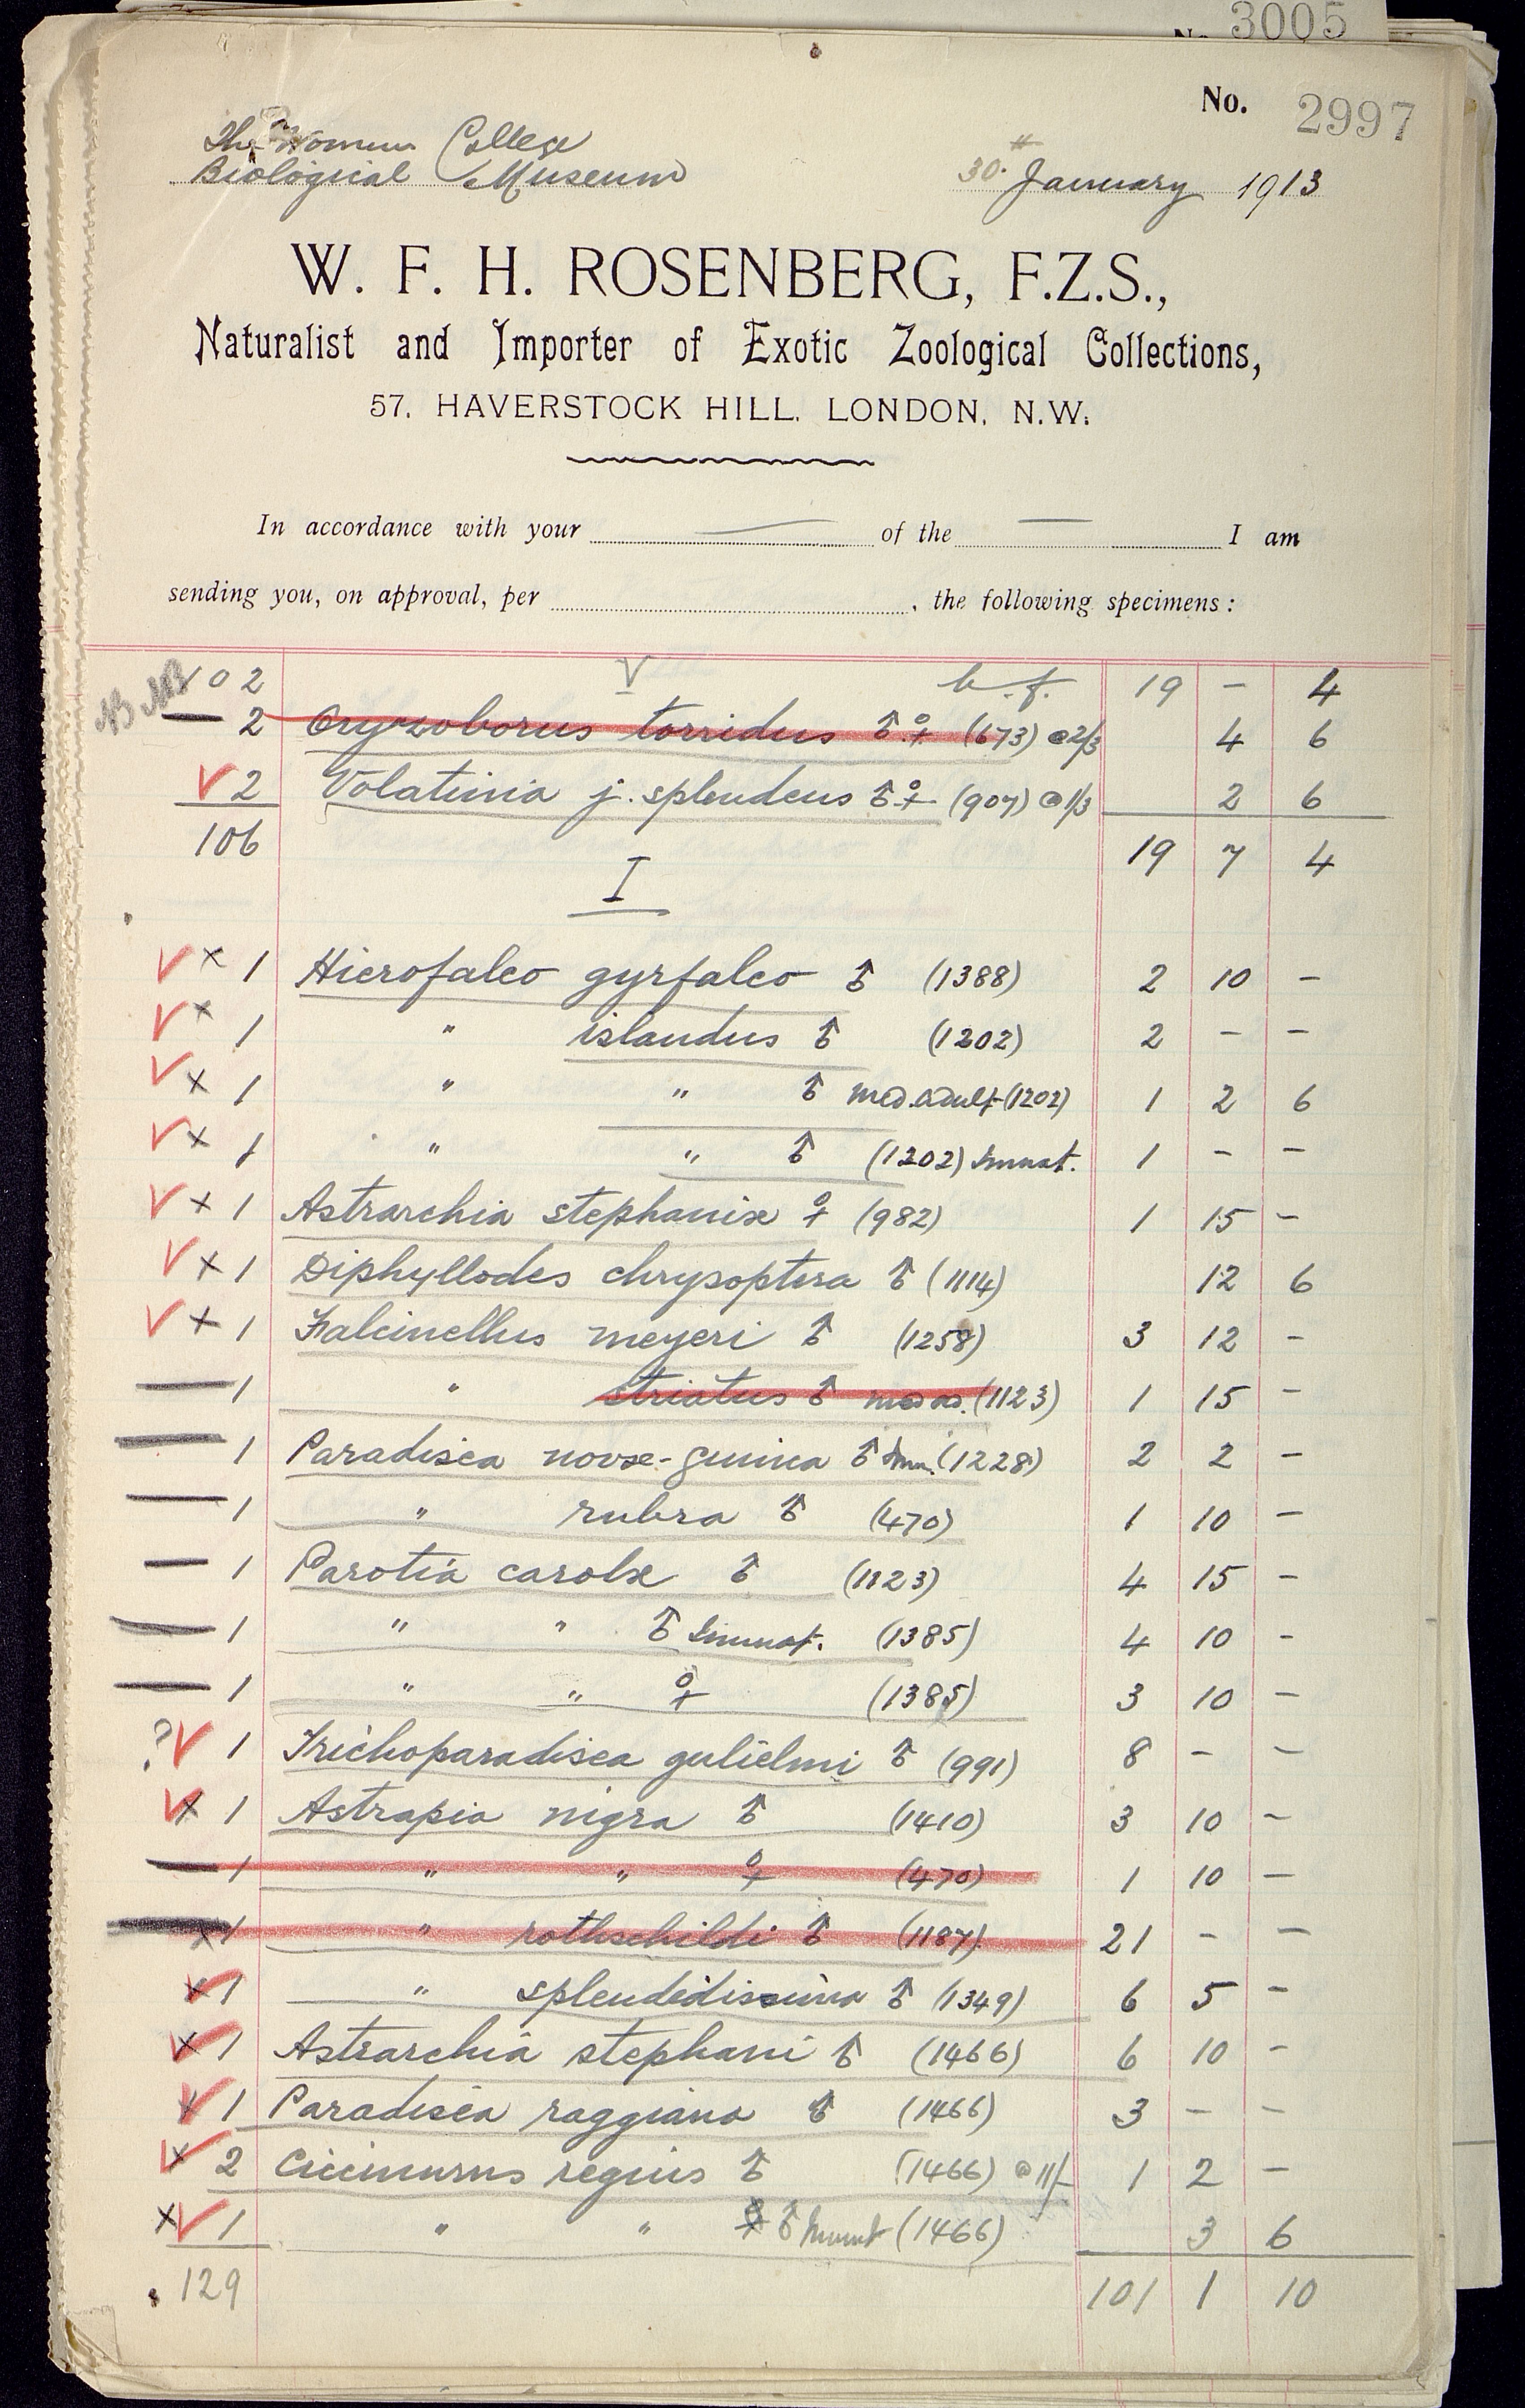 3005
No. 2997
The Women College
Biological Museum
30. January 1913
W. F. H. ROSENBERG, F.Z.S.,
Naturalist and Importer of Exotic Zoological Collections,
57, HAVERSTOCK HILL, LONDON, N.W.
In accordance with your — of the — I am
sending you, on approval, per , the following specimens:
102 V b.f. 19 - 4
2 Oryzoborus torridus ♂♀ (673) @ 2/3 4 6
√ 2 Volatinia j. splendens ♂♀ (907) @ 1/3 2 6
106 19 7 4
I
√ × 1 Hierofalco gyrfalco ♂ (1388) 2 10 -
√ × 1 " islandus ♂ (1202) 2 - -
√ × 1 " " ♂ med. adult (1202) 1 2 6
√ × 1 " " ♂ (1202) Immat. 1 - -
√ × 1 Astrarchia stephaniæ ♀ (982) 1 15 -
√ × 1 Diphyllodes chrysoptera ♂ (1114) 12 6
√ × 1 Falcinellus meyeri ♂ (1258) 3 12 -
— 1 " striatus ♂ med ad. (1123) 1 15 -
— 1 Paradisea novæ-guinea ♂ Imm. (1228) 2 2 -
— 1 " rubra ♂ (470) 1 10 -
— 1 Parotia carolæ ♂ (1123) 4 15 -
— 1 " " ♂ Immat. (1385) 4 10 -
— 1 " " ♀ (1385) 3 10 -
? √ 1 Trichoparadisea gulielmi ♂ (991) 8 - -
√ × 1 Astrapia nigra ♂ (1410) 3 10 -
— 1 " " ♀ (470) 1 10 -
— × 1 " rothschildi ♂ (1187) 21 - -
√ × 1 " splendidissima ♂ (1349) 6 5 -
√ × 1 Astrarchia stephani ♂ (1466) 6 10 -
√ × 1 Paradisea raggiana ♂ (1466) 3 - -
√ × 2 Cicinnurus regius ♂ (1466) @ 11/- 1 2 -
× √ 1 " " ♂ Immat (1466) 3 6
129 101 1 10